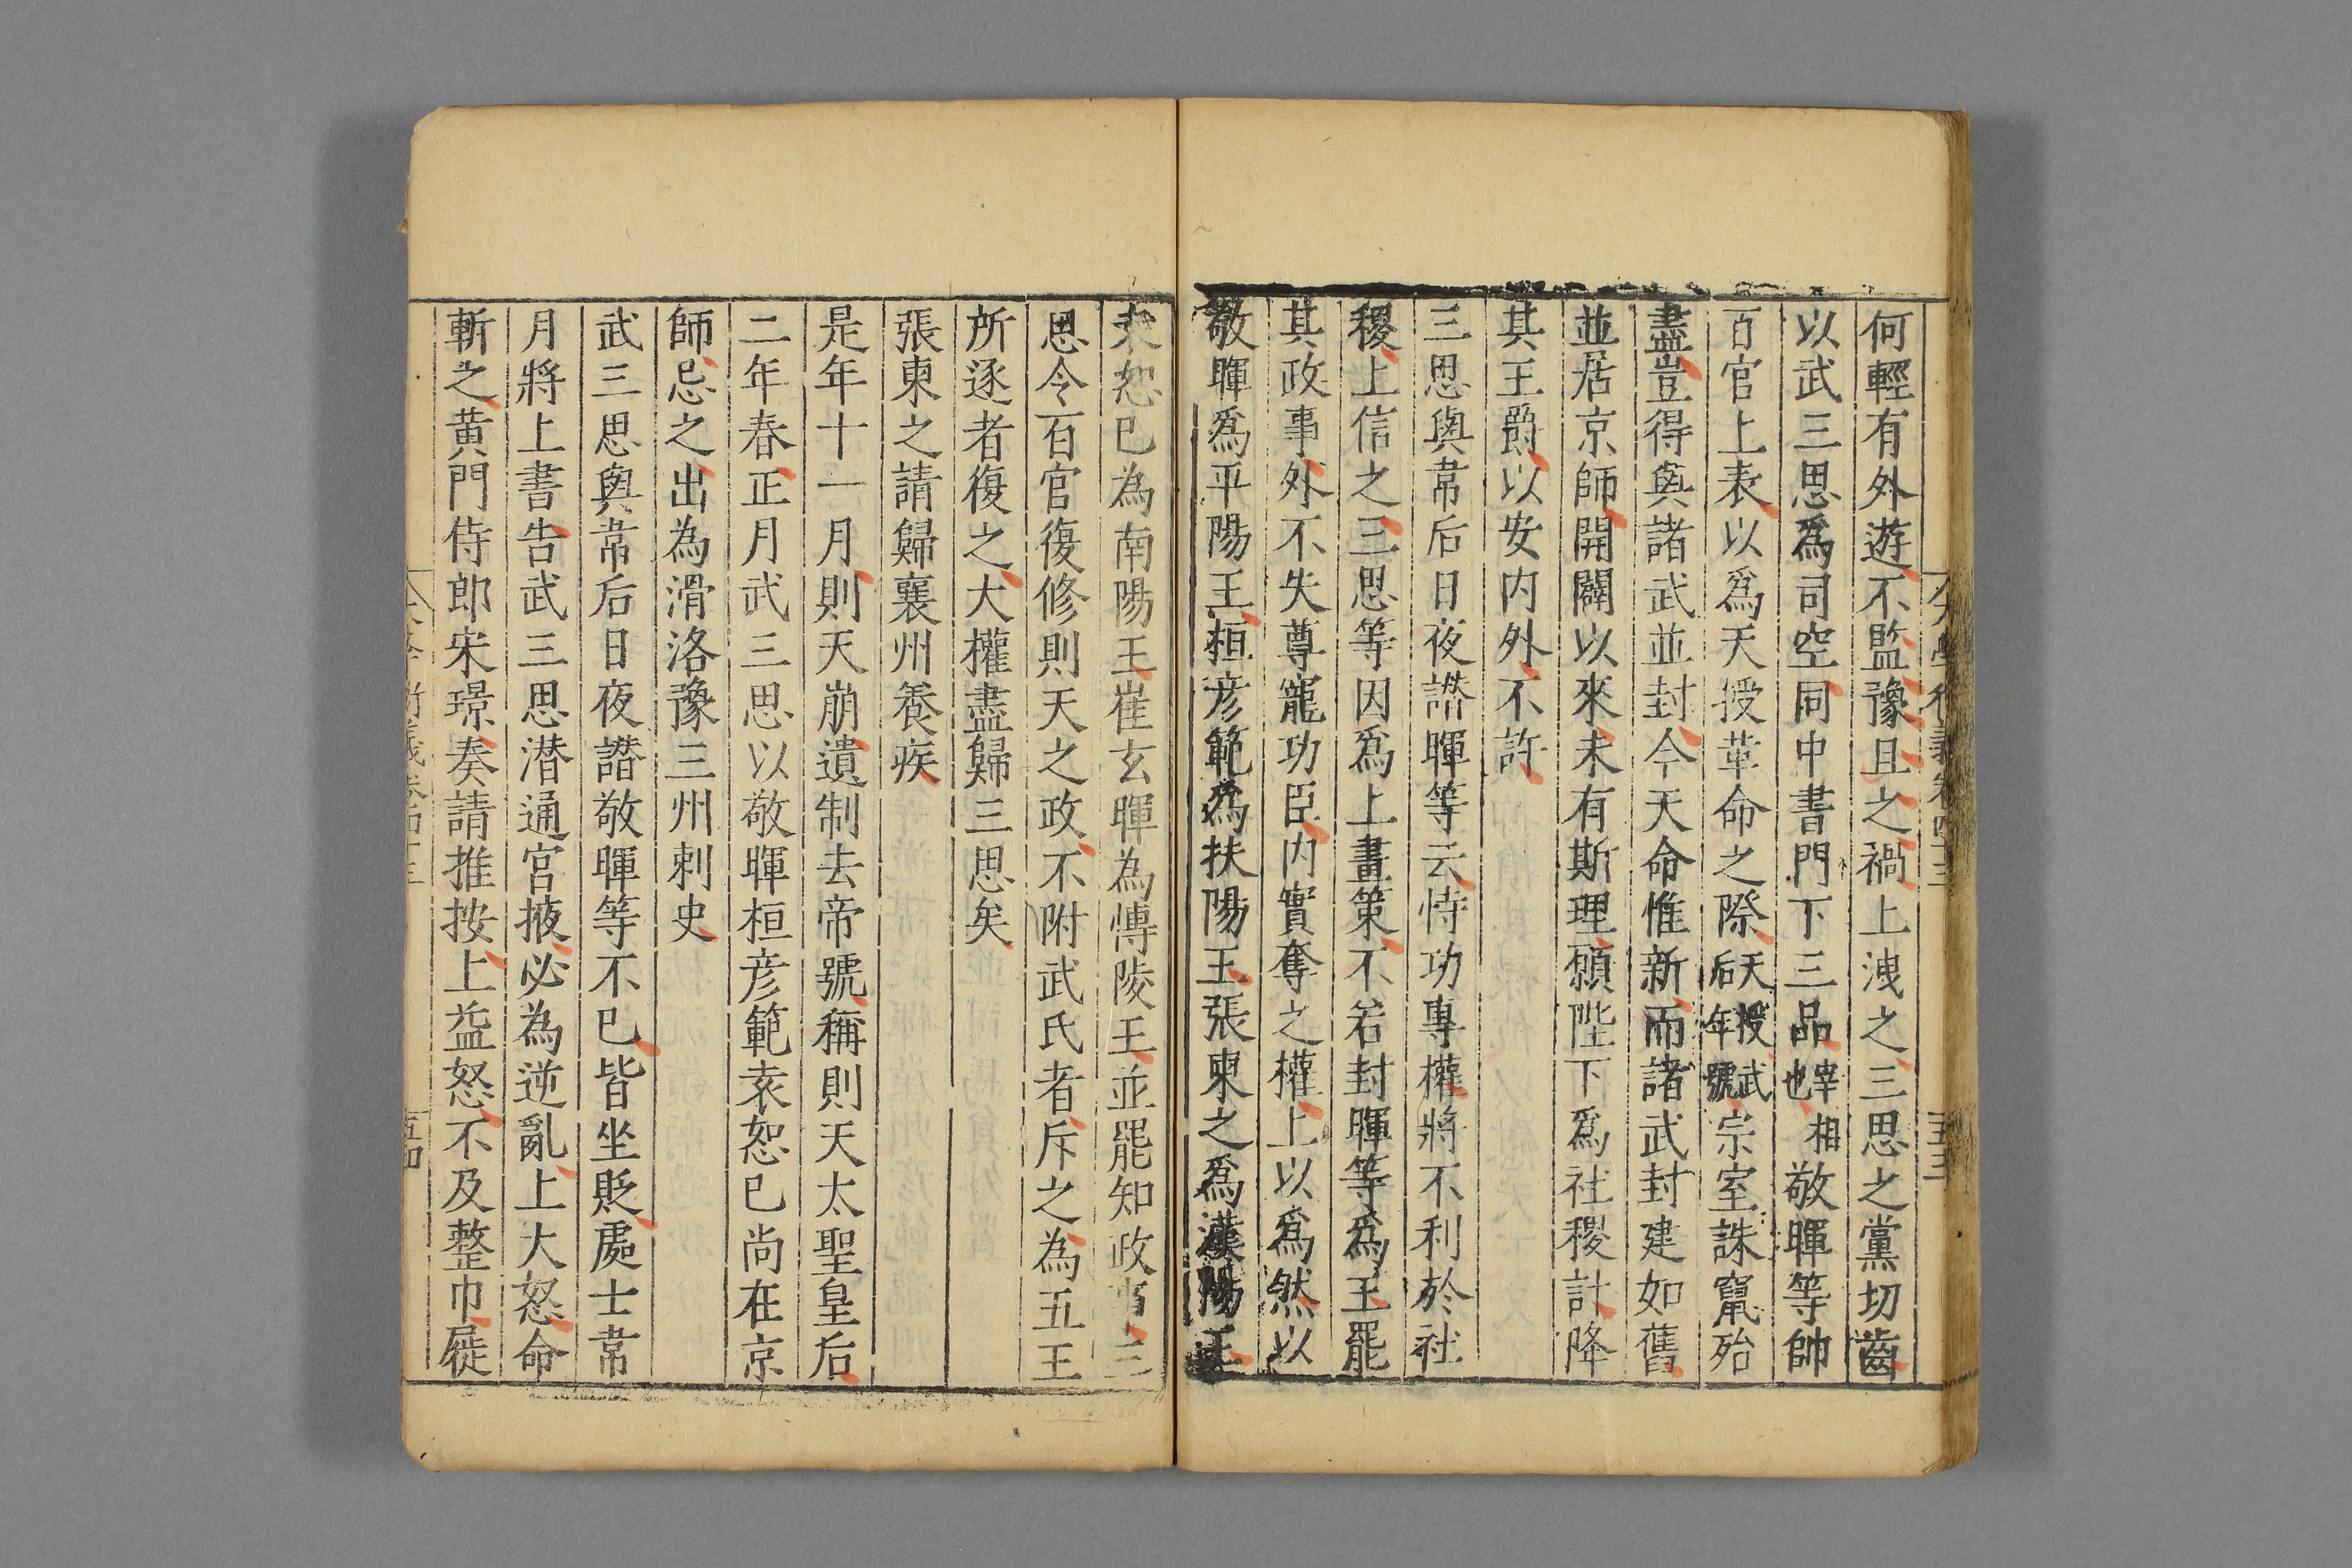 何輕有外遊不監豫且之禍上洩之三思之黨切齒
以武三思爲司空同中書門下三品宰相也敬暉等帥
百官上表以爲天授革命之際天授武后年號宗室誅竄殆
盡豈得與諸武並封今天命惟新而諸武封建如舊
並居京師開闢以來未有斯理願陛下爲社稷計降
其王爵以安内外不許
三思與韋后日夜譖暉等云恃功專權將不利於社
稷上信之三思等因爲上畫策不若封暉等爲王罷
其政事外不失尊寵功臣内實奪之權上以爲然以
敬暉爲平陽王桓彦範爲扶陽王張柬之爲漢陽王
袁恕己為南陽王崔玄暐為博陵王並罷知政事三
思令百官復修則天之政不附武氏者斥之為五王
所逐者復之大權盡歸三思矣
張柬之請歸襄州養疾
是年十一月則天崩遺制去帝號稱則天大聖皇后
二年春正月武三思以敬暉桓彦範袁恕己尚在京
師忌之出為滑洛豫三州刺史
武三思與韋后日夜譖敬暉等不已皆坐貶處士韋
月將上書告武三思潜通宮掖必為逆亂上大怒命
斬之黄門侍郎宋璟奏請推按上益怒不及整巾屣